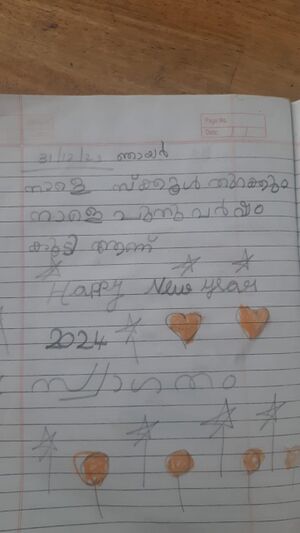 Page No.
Date:
31/12/23 ഞായർ
നാളെ സ്ക്കൂൾ തുറക്കും
നാളെ പുതുവർഷം
കൂട്ടി ആണ്
Happy New year
2024
സ്വാഗതം